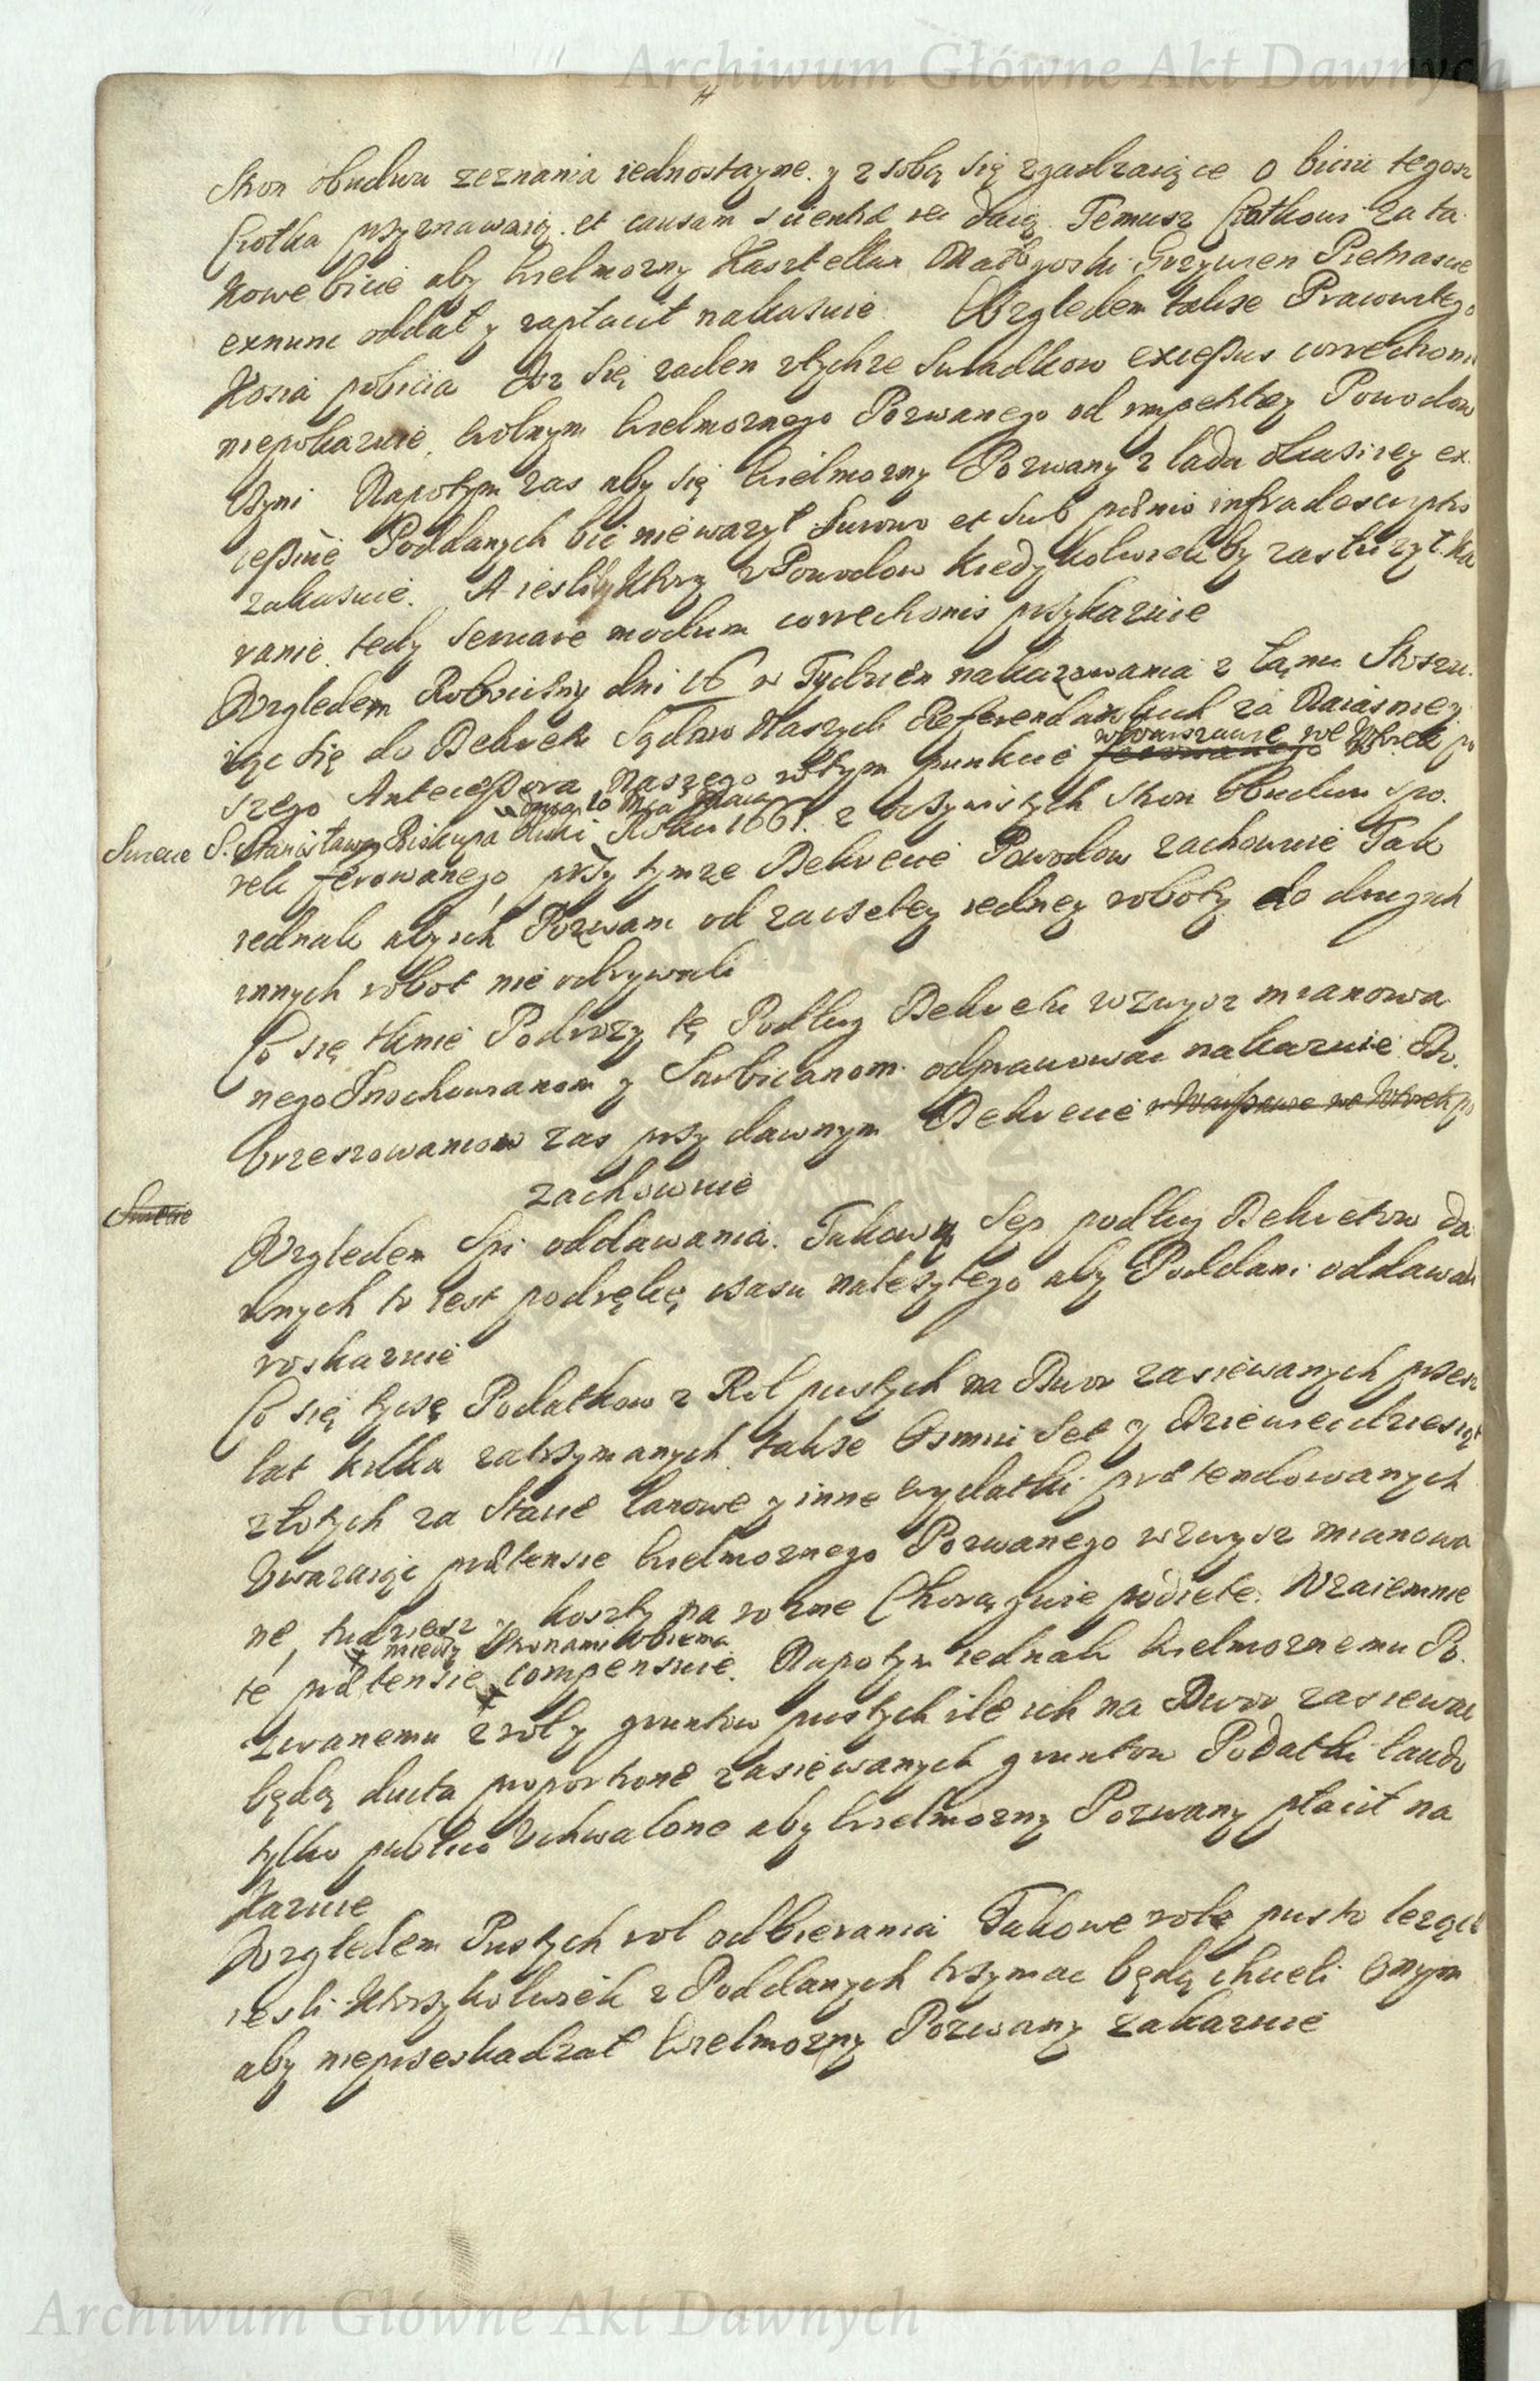 Archiwum Główne Akt Dawnych
Stron obudwu zeznania iednostayne y z sobą się zgadzaiące o biciu tegosz
Crotka przyznawaią et causam scientiæ rei daią Temusz Crotkowi za ta
kowe bicie aby Wielmozny Kasztellan Grzywien
exnunc oddał y zapłacił nakazuie. Względem takze Prawowitego
Kosia pobicia Asz się zaden z tychze Swiadkow excessus correctionis
niepokazuie, wolnym Wielmoznego Pozwanego od impetitiey Powodow
czyni Napotym zas aby się Wielmozny Pozwany z lada okasiiey ex
cessiue Poddanych bić nie wazył Surowo et sub pœnis infradescriptis
zakazuie. A iesliby ktory z Powodow kiedykolwiek by zasłuzył ka
ranie tedy seruare modum correctionis przykazuie
Względem Robocizny dni 16 w Tydzien nakazowania z Łanu Stosu
iąc się do Dekretu Sądow Naszych Referendarskich za Naiasniey
szego Antecessora Naszego w tym punkcie ferowanego w Warszawie we Wtorek po
Swiecie S. Stanisława Biskupa dnia 10 Mca Maia Roku 1661. z oczywistych Stron obudwu spo
rek ferowanego, przy tymze Dekrecie Powodow zachowuie Tak
iednak aby ich Pozwani od zaczetey iedney roboty do drugich
innych robot nie odrywali
Co się tknie Podrozy tę Podług Dekretu wzwysz mianowa
nego Inochowianom y Sarbicanom odprawowac nakazuie Do
brzeszowianow zas przy dawnym Dekrecie w Warszawie we Wtorek po
Swiecie
zachowuie
Względem Spi oddawania. Takowy Sep podług Dekretow da
wnych to iest podrękę czasu nalezytego aby Poddani oddawali
roskazuie
Co się tycze Podatkow z Rol pustych na Dwor zasiewanych przez
lat kilka zatrzymanych, takze Osmiu Set y Dziewiecdziesiąt
złotych za Stacie łanowe y inne wydatki prætendowanych
Uwazaiąc prætensie Wielmoznego Pozwanego wzwysz mianowa
ne, tudziesz y koszty na rozne Chorągwie podiete. Wzaiemnie
te prætensie miedzy Stronami obiema compensuie. Napotym iednak Wielmoznemu Po
zwanemu z rol y gruntow pustych ile ich na Dwor zasiewac
będą ducta proportione zasiewanych gruntow Podatki laudo
tylko publico Uchwalone aby Wielmozny Pozwany płacił na
kazuie
Względem Pustych rol odbierania Takowe role pusto lezące
iesli ktorzykolwiek z Poddanych trzymac będą chcieli Onym
aby nieprzeszkadzał Wielmozny Pozwany zakazuie
Archiwum Główne Akt Dawnych